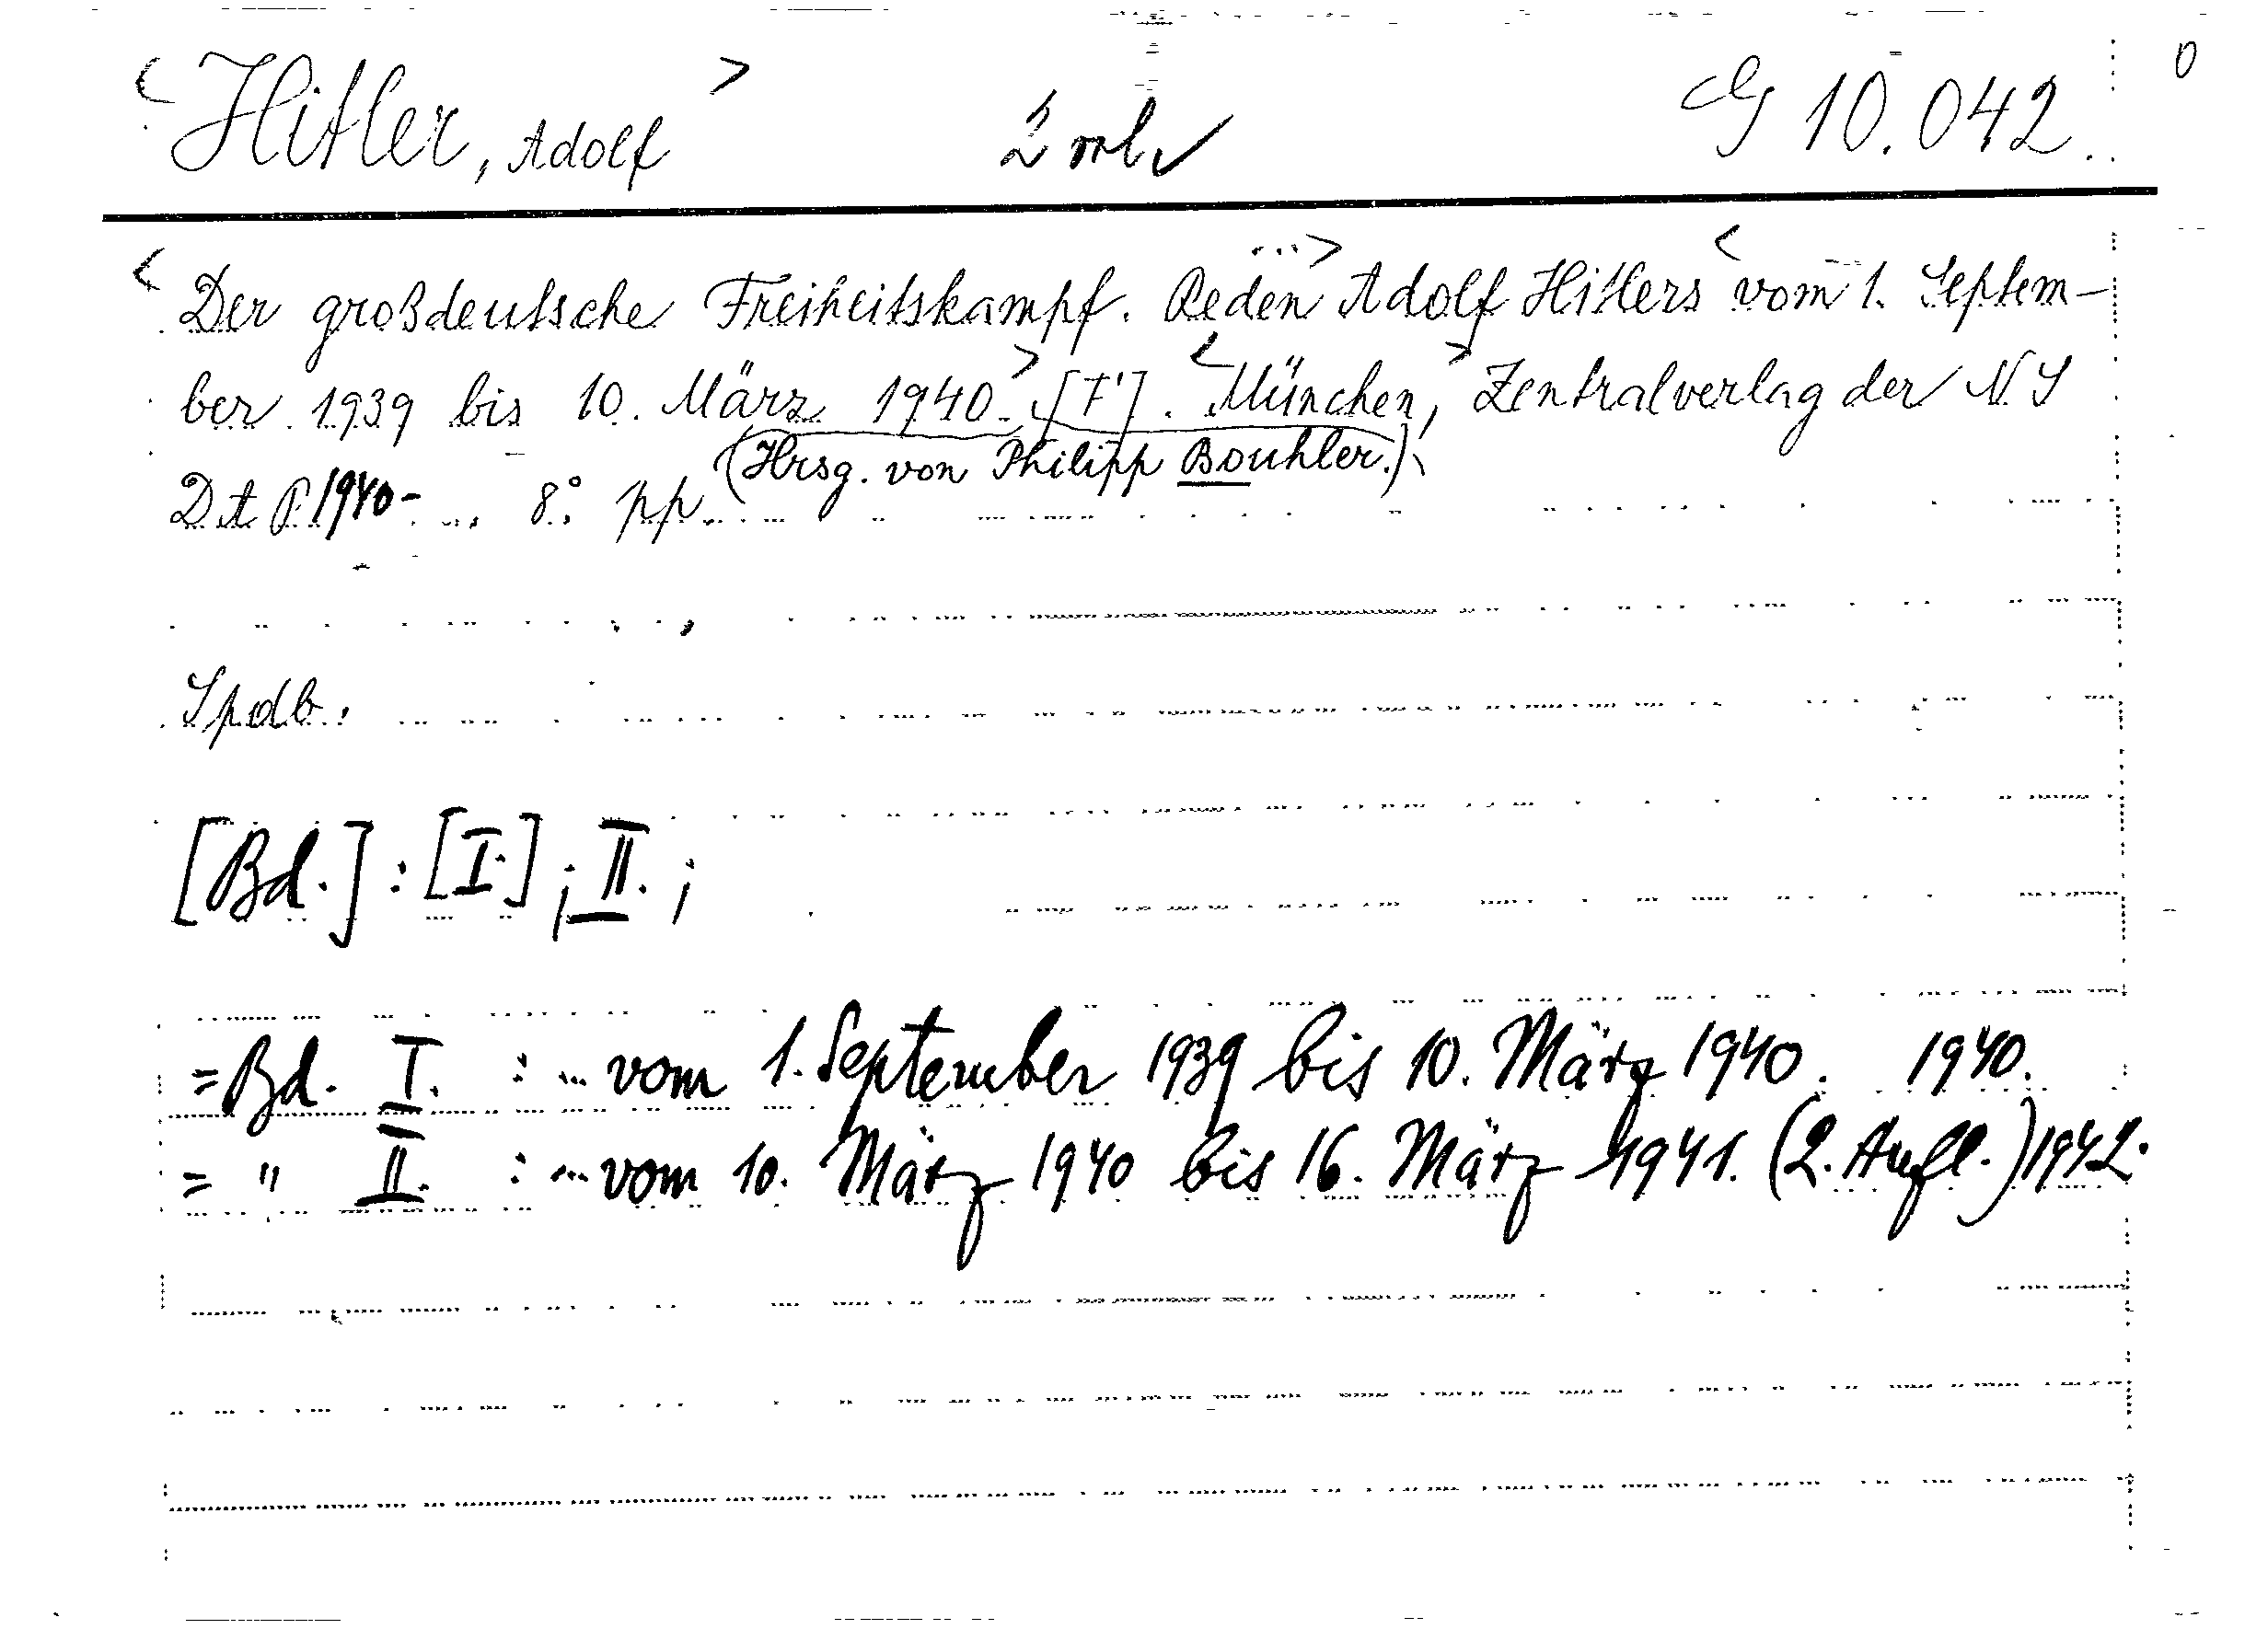 <Hitler, Adolf> 2 vol. G 10.042.
<Der großdeutsche Freiheitskampf. Reden ...> Adolf Hitlers <vom 1. Septem-
ber 1939 bis 10. März 1940.> [I]. <München,> Zentralverlag der N S
(Hrsg. von Philipp Bouhler.)
D A P 1940- ... 8° pp.
Spdb.
[Bd.] : [I.] ; II. ;
= Bd. I. : ... vom 1. September 1939 bis 10. März 1940. 1940.
= " II. : ... vom 10. März 1940 bis 16. März 1941. (2. Aufl.) 1942.